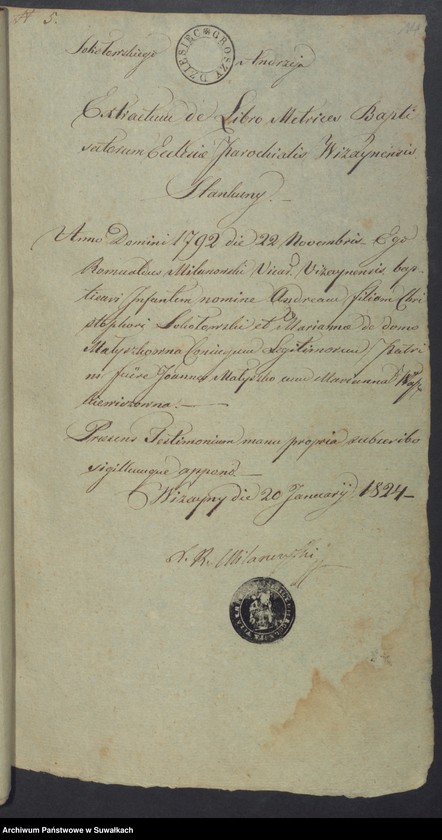 N 5.
DZIESIĘĆ GROSZY
Sokołowskiego Andrzeja
Extractum de Libro Metrices Bapti
satorum Ecclesiæ Parochialis Wizaynensis
Anno Domini 1792 die 22 Novembris Ego
Romualdus Milanowski Vica: Vizaynensis bap
tizavi Infantem nomine Andream filium Chri
stophori Sokołowski et Marianna de domo
Matyszkowna Coniugum Legitimorum Patri
ni fuêre Joannes Matyszko cum Marianna
kiewiczowna.
Præsens Testimonium manu propria subscribo
sigillumque appono
Wizayny die 20 January 1824
X. R. Milanowski
Archiwum Państwowe w Suwałkach